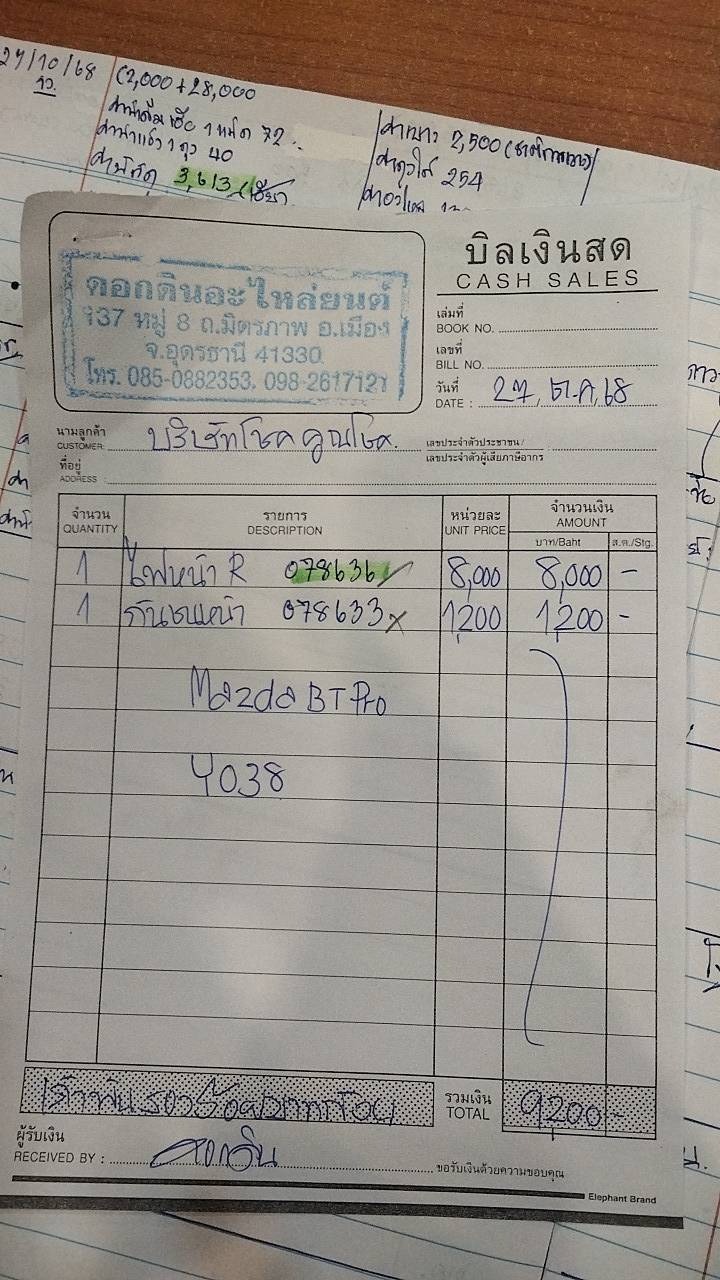 27/10/68
(2,000+28,000
72
40
3,613
2,500
254
ดอกดินอะไหล่ยนต์
137 หมู่ 8 ถ.มิตรภาพ อ.เมือง
จ.อุดรธานี 41330
โทร. 085-0882353, 098-2617121
บิลเงินสด
CASH SALES
เล่มที่
BOOK NO.
เลขที่
BILL NO.
วันที่
DATE : 27, ต.ค, 68
นามลูกค้า
CUSTOMER: บริษัทโชคคูณโชค.
เลขประจำตัวประชาชน/
เลขประจำตัวผู้เสียภาษีอากร
ที่อยู่
ADDRESS
จำนวน รายการ หน่วยละ จำนวนเงิน
QUANTITY DESCRIPTION UNIT PRICE AMOUNT
บาท/Baht ส.ต./Stg.
1 ไฟหน้า R 078636 8,000 8,000 -
1 กันชนหน้า 078633 x 1,200 1,200 -
Mazda BT Pro
4038
เก้าพันสองร้อยบาทถ้วน
รวมเงิน
TOTAL 9,200 -
ผู้รับเงิน
RECEIVED BY : ดอกดิน
ขอรับเงินด้วยความขอบคุณ
Elephant Brand